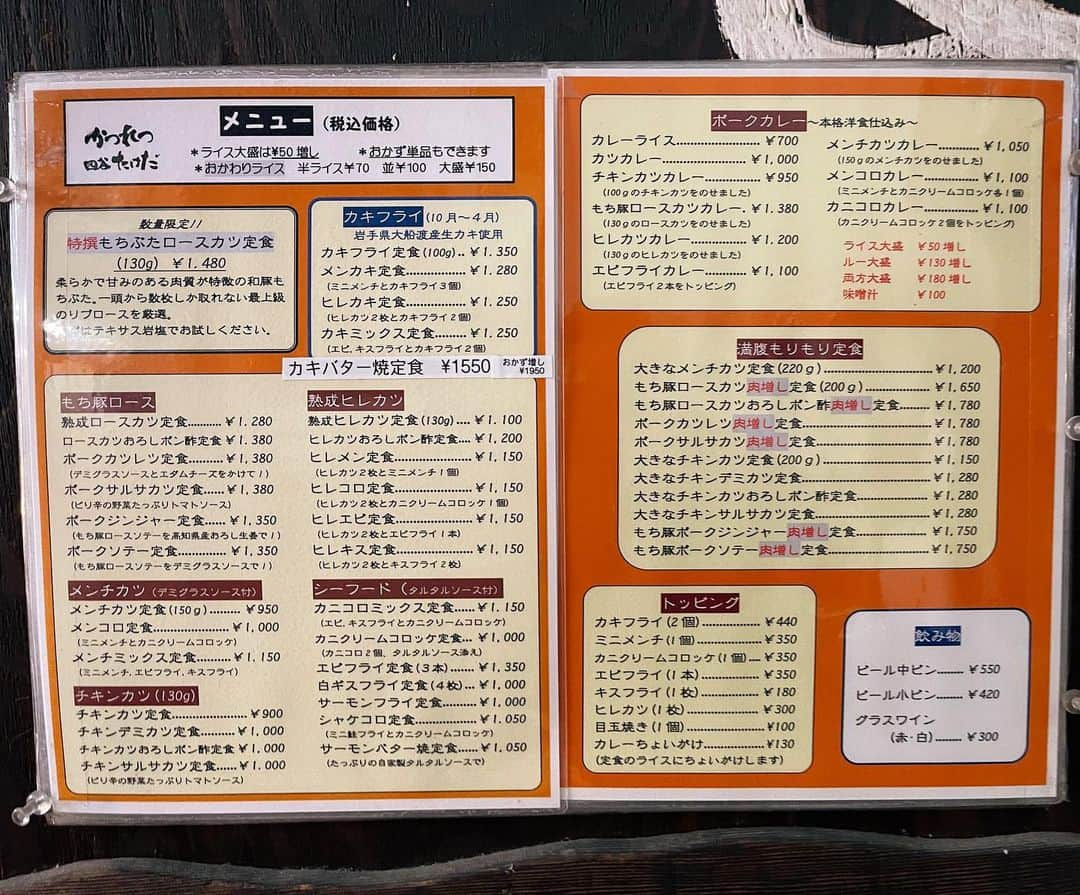 かつれつ
四谷たけだ
メニュー (税込価格)
*ライス大盛は¥50増し *おかず単品もできます
*おかわりライス 半ライス¥70 並¥100 大盛¥150
数量限定!!
特撰もちぶたロースカツ定食
(130g) ¥1.480
柔らかで甘みのある肉質が特徴の和豚も
ちぶた。一頭から数枚しか取れない最上級
のリブロースを厳選。
はテキサス岩塩でお試しください。
カキフライ(10月~4月)
岩手県大船渡産生カキ使用
カキフライ定食(100g)..¥1.350
メンカキ定食.........¥1.280
(ミニメンチとカキフライ3個)
ヒレカキ定食.........¥1.250
(ヒレカツ2枚とカキフライ2個)
カキミックス定食.........¥1.250
(エビ、キスフライとカキフライ2個)
カキバター焼定食 ¥1550 おかず増し
¥1950
もち豚ロース
熟成ロースカツ定食......¥1.280
ロースカツおろしポン酢定食¥1.380
ポークカツレツ定食......¥1,380
(デミグラスソースとエダムチーズをかけて!)
ポークサルサカツ定食......¥1,380
(ピリ辛の野菜たっぷりトマトソース)
ポークジンジャー定食......¥1,350
(もち豚ロースソテーを高知県産おろし生姜で!)
ポークソテー定食......¥1,350
(もち豚ロースソテーをデミグラスソースで!)
メンチカツ(デミグラスソース付)
メンチカツ定食(150g).........¥950
メンコロ定食...............¥1,000
(ミニメンチとカニクリームコロッケ)
メンチミックス定食......¥1.150
(ミニメンチ、エビフライ、キスフライ)
チキンカツ(130g)
チキンカツ定食..................¥900
チキンデミカツ定食......¥1.000
チキンカツおろしポン酢定食¥1.000
チキンサルサカツ定食......¥1.000
(ピリ辛の野菜たっぷりトマトソース)
熟成ヒレカツ
熟成ヒレカツ定食(130g)....¥1.100
ヒレカツおろしポン酢定食....¥1,200
ヒレメン定食..................¥1,150
(ヒレカツ2枚とミニメンチ1個)
ヒレコロ定食..................¥1,150
(ヒレカツ2枚とカニクリームコロッケ1個)
ヒレエビ定食..................¥1,150
(ヒレカツ2枚とエビフライ1本)
ヒレキス定食..................¥1,150
(ヒレカツ2枚とキスフライ2枚)
シーフード(タルタルソース付)
カニコロミックス定食......¥1.150
(エビ、キスフライとカニクリームコロッケ)
カニクリームコロッケ定食...¥1,000
(カニコロ2個、タルタルソース添え)
エビフライ定食(3本)......¥1,350
白ギスフライ定食(4枚)...¥1,000
サーモンフライ定食.........¥1,000
シャケコロ定食...............¥1.050
(ミニ鮭フライとカニクリームコロッケ)
サーモンバター焼定食......¥1.050
(たっぷりの自家製タルタルソースで)
ポークカレー~本格洋食仕込み~
カレーライス.....................¥700
カツカレー........................¥1,000
チキンカツカレー...............¥950
(100gのチキンカツをのせました)
もち豚ロースカツカレー.¥1.380
(130gのロースカツをのせました)
ヒレカツカレー...............¥1.200
(130gのヒレカツをのせました)
エビフライカレー............¥1,100
(エビフライ2本をトッピング)
メンチカツカレー............¥1,050
(150gのメンチカツをのせました)
メンコロカレー...............¥1,100
(ミニメンチとカニクリームコロッケ各1個)
カニコロカレー...............¥1,100
(カニクリームコロッケ2個をトッピング)
ライス大盛 ¥50増し
ルー大盛 ¥130増し
両方大盛 ¥180増し
味噌汁 ¥100
満腹もりもり定食
大きなメンチカツ定食(220g)..............................¥1,200
もち豚ロースカツ肉増し定食(200g)..................¥1.650
もち豚ロースカツおろしポン酢肉増し定食.........¥1.780
ポークカツレツ肉増し定食..............................¥1.780
ポークサルサカツ肉増し定食..............................¥1.780
大きなチキンカツ定食(200g)..............................¥1,150
大きなチキンデミカツ定食..............................¥1.280
大きなチキンカツおろしポン酢定食..................¥1.280
大きなチキンサルサカツ定食..............................¥1.280
もち豚ポークジンジャー肉増し定食..................¥1,750
もち豚ポークソテー肉増し定食..............................¥1,750
トッピング
カキフライ(2個)...............¥440
ミニメンチ(1個)...............¥350
カニクリームコロッケ(1個)....¥350
エビフライ(1本)...............¥350
キスフライ(1枚)...............¥180
ヒレカツ(1枚)..................¥300
目玉焼き(1個)..................¥100
カレーちょいがけ...............¥130
(定食のライスにちょいがけします)
飲み物
ビール中ビン.........¥550
ビール小ビン.........¥420
グラスワイン
(赤・白).........¥300